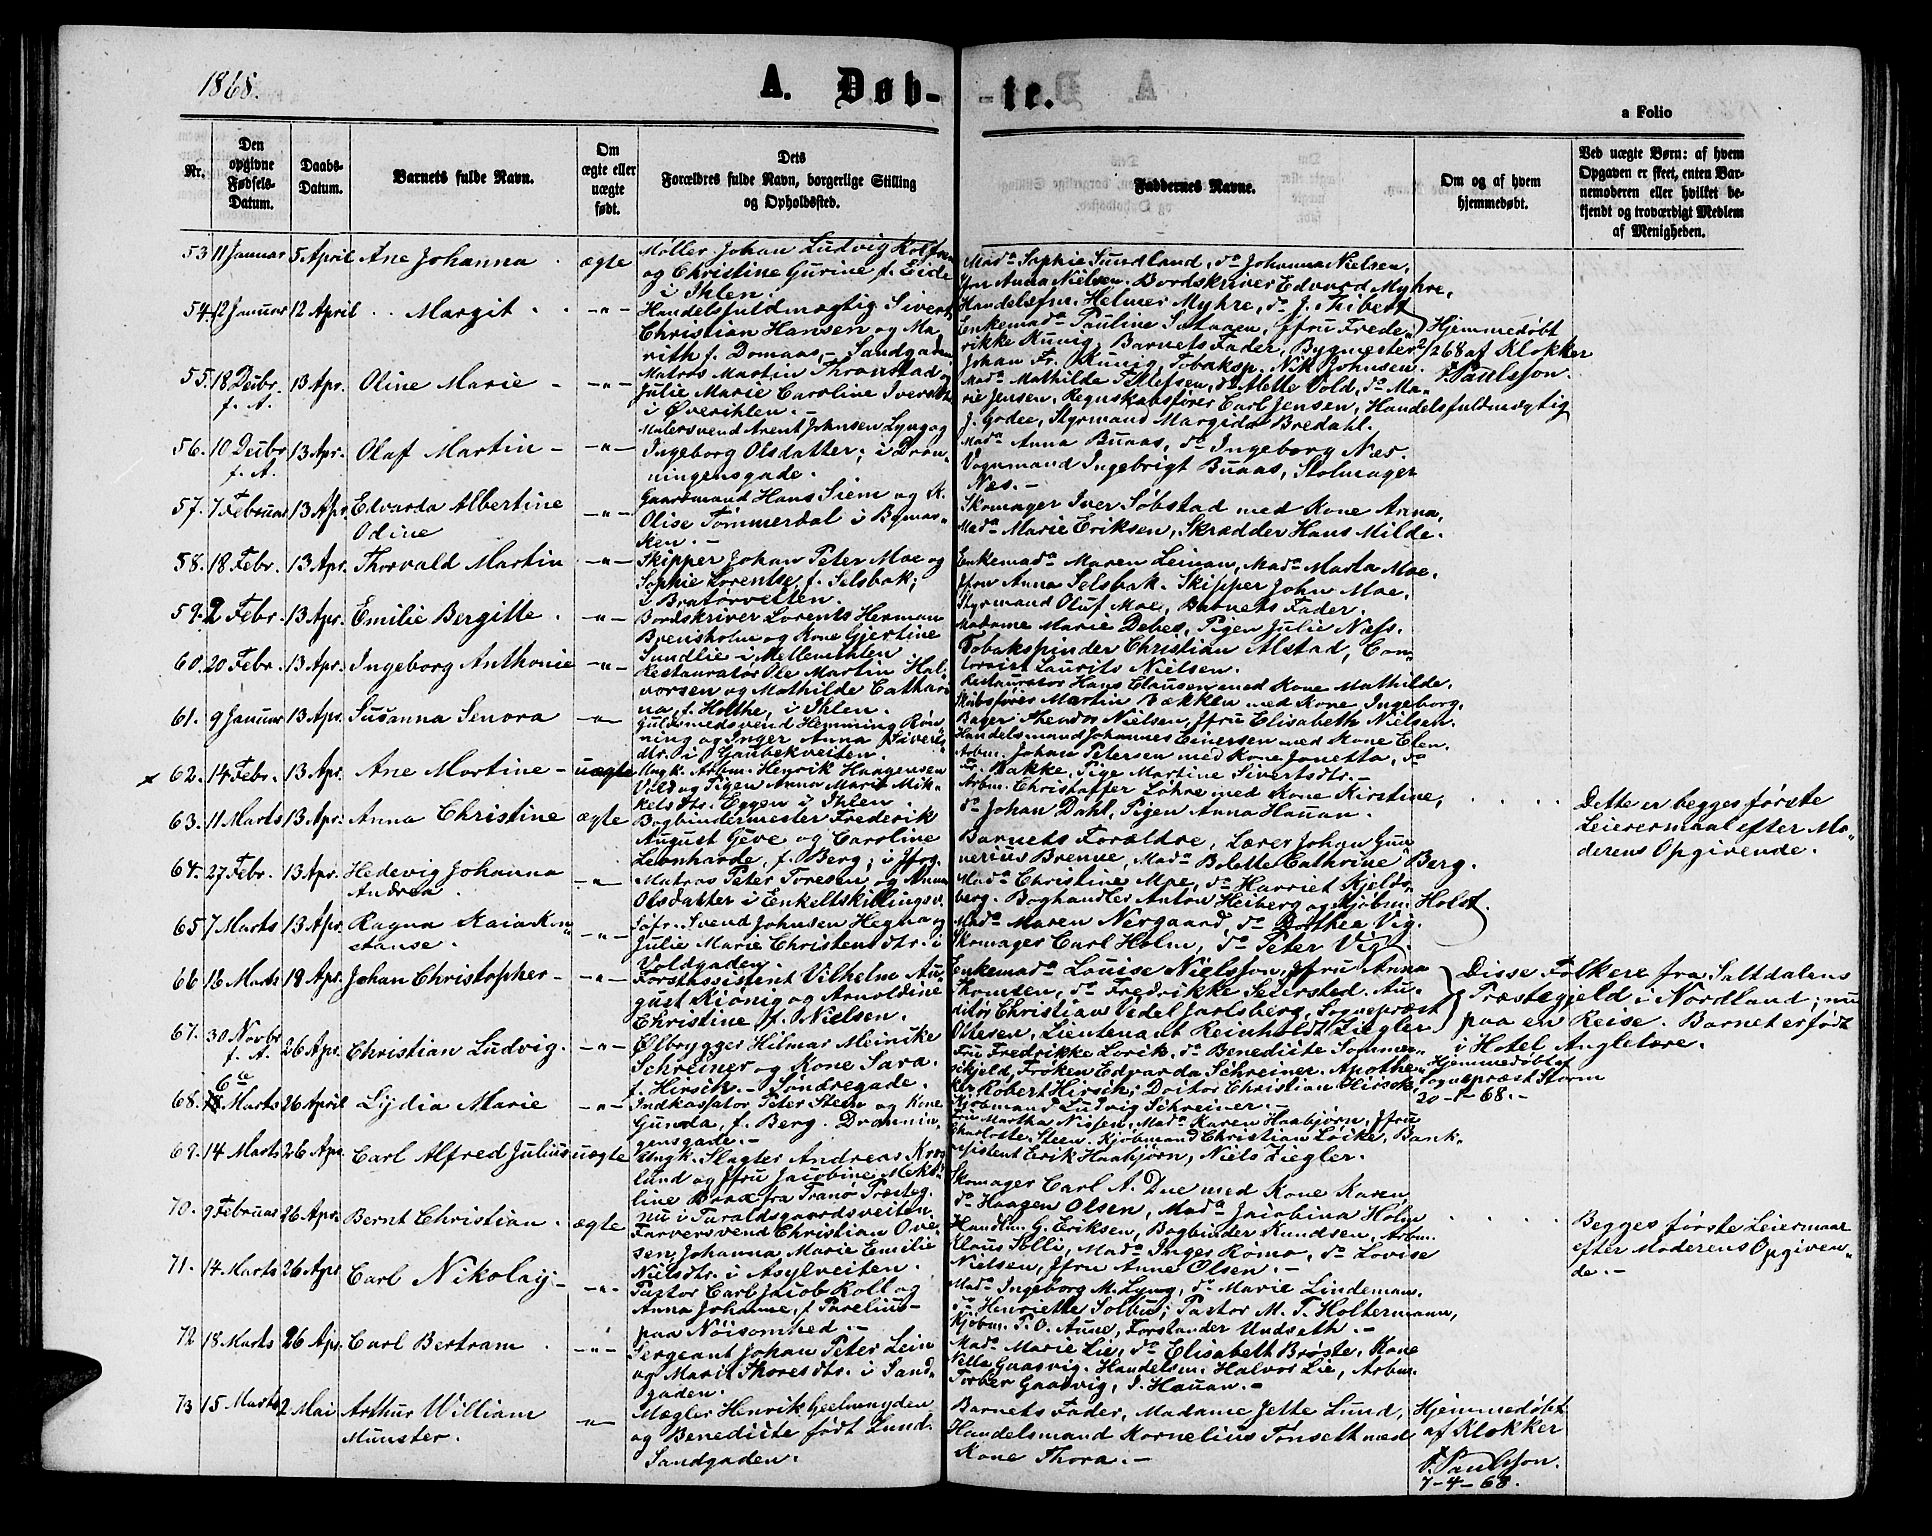 1868.
A. Døb-
te.
a Folio
Nr.
Den opgivne Fødsels-Datum.
Daabs-Datum.
Barnets fulde Navn.
Om ægte eller uægte født.
Dets Forældres fulde Navn, borgerlige Stilling og Opholdssted.
Faddernes Navne.
Om og af hvem hjemmedøbt.
Ved uægte Børn: af hvem Opgaven er skeet, enten Barnemoderen eller hvilket bekjendt og troværdigt Medlem af Menigheden.
53 11 Januar 5 April Ane Johanna ægte
Møller Johan Ludvig
og Christine Gurine f. Eide
i Ihlen.
Mad. Sophie Sundland, do Johanna Nielsen,
Jfru Anna Nielsen. Bordskriver Edvard Myhre,
Handelsfm. Helmer Myhre, do J. Thibest
54. 12 Januar 12 April Margit -"-
Handelsfuldmægtig Sivert
Christian Hansen og Ma-
rith f. Domaas, - Sandgaden
Enkemada Pauline Jfru Frede-
rikke Kunig, Barnets Fader, Bygmester
Johan Fr. Kunig, Tobaksp. Nik Johnsen.
Hjemmedøbt
2/2 68 af Klokker
F. Paulsson.
55. 18 Decbr. f. A. 13 Apr. Oline Marie -"-
Matros Martin Thronstad og
Julie Marie Caroline Iversdtr.
i Øverihlen. -
Mada Mathilde Tellefsen, do Mette Vold, do Ma-
rie Jensen, Regnskabsfører Carl Jensen, Handelsfuldmægtig
J. Godee, Styrmand Margido Bredahl.
56. 10 Decbr f. A. 13 Apr. Olaf Martin - -"-
Malersvend Arent Johnsen Lyng og
Ingeborg Olsdatter; i Dron-
ningensgade.
Mada Anna Buaas, do Ingeborg Næs.
Vognmand Ingebrigt Buaas, Stolmager
Næs. -
57. 7 Februar 13 Apr. Edvarda Albertine
Odine -"-
Gaardmand Hans Siem og K.
Olise Tømmerdal i Bymar-
ken. -
Skomager Iver Søbstad med Kone Anna,
Mada Marie Eriksen, Skrædder Hans Milde.
58. 18 Febr. 13 Apr. Thorvald Martin -"-
Skipper Johan Peter Moe og
Sophie Lorentse, f. Selsbak;
i Bratørveiten.
Enkemada Maren Leinan, Mada Marta Moe,
Jfru Anna Selsbak. Skipper John Moe,
Styrmand Oluf Moe, Barnets Fader.
59. 2 Febr. 13 Apr. Emilie Bergitte. -"-
Bordskriver Lorents Herman
Brensholm og Kone Gjertine
Sundlie i Mellemihlen
Madame Marie Debes, Pigen Julie Næss.
Tobakspinder Christian Alstad, Con-
torist Laurits Nielsen.
60. 20 Febr. 13 Apr. Ingeborg Anthonie -"-
Restauratør Ole Martin Hal-
vorsen og Mathilde Cathari-
na, f. Holthe, i Ihlen.
Restauratør Hans Clausen med Kone Mathilde.
Skibsfører Martin Bækken med Kone Ingeborg.
Bager Theodor Nielsen, Jfru Elisabeth Nielsen.
61. 9 Januar 13 Apr. Susanna Senora -"-
Guldsmedsvend Hemming Røn-
ning og Inger Anna Sivert-
dtr. i Gaubekveiten.
Handelsmand Johannes Einersen med Kone Elen.
Arbm. Johan Petersen med Kone Jonetta, do
Fr. Bakke, Pige Martine Sivertsdtr. -
62. 14 Febr. 13 Apr. Ane Martine - uægte
Ungk. Arbm. Henrik Haagensen
Vold og Pigen Anna Marit Mik-
kelsdtr. Eggen i Ihlen.
Arbm. Christoffer Løhre med Kone Kirstine,
do Johan Dahl, Pigen Anna Hauan.
Dette er begges første
Leiermaal efter Mo-
derens Opgivende.
63. 11 Marts 13 Apr. Anna Christine ægte
Bogbindermester Frederik
August Geve og Caroline
Leonharde, f. Berg; i
Barnets Forældre, Lærer Johan Gun-
nerius Brenne, Mada Bolette Cathrine Berg.
64. 27 Febr. 13 Apr. Hedevig Johanna
Andrea. -"-
Matros Peter Toresen og Anna
Olsdatter i Enkeltskillingsv.
Mada Christine Moe, do Harriet Kjelds-
berg. Boghandler Anton Heiberg og Kjøbm. Holst.
65 7 Marts 13 Apr. Ragna Kaia Kon-
stanse. -"-
Søfr. Svend Johnsen Hegna og
Julie Marie Christensdtr. i
Voldgaden.
Mada Maren Nergaard, do Dorthea Vig.
Skomager Carl Holm, do Peter Vig.
66 18 Marts 19 Apr. Johan Christopher - -"-
Forstassistent Vilhelm Au-
gust Kiønig og Arnoldine
Christine, f. Nielsen.
Enkemada Louise Nielsson, Jfru Anna
Thomsen, do Fredrikke Seierstad. Au-
ditør Christian Vedel Jarlsberg, Sognepræst
Ottesen, Lieutenant Reinholdt Ziegler
Disse Folk ere fra Saltdalens
Præstegjeld i Nordland; nu
paa en Reise. Barnet er født
i Hotel Angleterre.
67. 30 Novbr f. A. 26 Apr. Christian Ludvig. -"-
Ølbrygger Hilmar Meinike
Schreiner og Kone Sara.
f. Hirsch. - Søndregade.
Fru Fredrikke Lorck, do Benedicte Sommer-
schjeld, Frøken Edvarda Schreiner. Apothe-
ker Robert Hirsch; Doctor Christian Hirsch
Kjøbmand Ludvig Schreiner. -
Hjemmedøbt af
Sognepræst Storm
30-1-68. -
68. 6te Marts 26 April Lydia Marie -"-
Indkassator Peter Steen og Kone
Gunda, f. Berg. Dronnin-
gensgade. -
Fru Martha Nissen, Mada Karen Haabjørn, Jfru
Charlotte Steen. Kjøbmand Christian Løcke, Bank-
assistent Erik Haabjørn, Niels Ziegler.
69. 14 Marts 26 Apr. Carl Alfred Julius uægte
Ungk. Slagter Andreas Krog-
lund og Jfru Jacobine Mekt-
line Brax fra Tranø Præsteg.
nu i Taraldsgaardsveiten.
Skomager Carl A. Due med Kone Karen,
do Haagen Olsen, Mada Jacobina Holm
Begges første Leiermaal
efter Moderens Opgiven-
de. -
70. 9 Februar 26 Apr. Bernt Christian. ægte
Farversvend Christian Ove-
sen, Johanna Marie Emilie
Nielsdtr. i Asylveiten.
Handlm. G. Eriksen, Bogbinder Knudsen, Arbm.
Claus Solli, Mada Inger Romo, do Lovise
Nielsen, Jfru Anne Olsen. -
71. 14 Marts 26 Apr Carl Nikolay - -"-
Pastor Carl Jacob Roll og
Anna Johanne, f. Parelius -
paa Nøisomhed. -
Mada Ingeborg M. Lyng, do Marie Lindeman,
do Henriette Solbu; Pastor M. T. Holtermann,
Kjøbm. P. O. Aune, Forstander Undseth. -
72 18 Marts 26 Apr. Carl Bertram -"-
Sergeant Johan Peter Lein
og Marit Thoresdtr. i Sand-
gaden.
Mada Marie Lie, do Elisabeth Brøste, Kone
Nella Gaasvig. Handelsm. Halvor Lie, Arbm.
Torber Gaasvig, J. Hauan. -
73 15 Marts 2 Mai Arthur William
Munster. -"-
Mægler Henrik Gjelmuyden
og Benedicte født Lund.
Sandgaden.
Barnets Fader, Madame Jette Lund,
Handelsmand Kornelius Tonseth med
Kone Thora. -
Hjemmedøbt
af Klokker
F. Paulsson.
7-4-68.